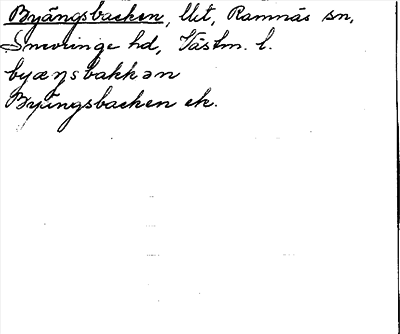 Byängsbacken, llt, Ramnäs sn,
Snevringe hd, Västm. l.
byæŋsbakkən
Byängsbacken ek.